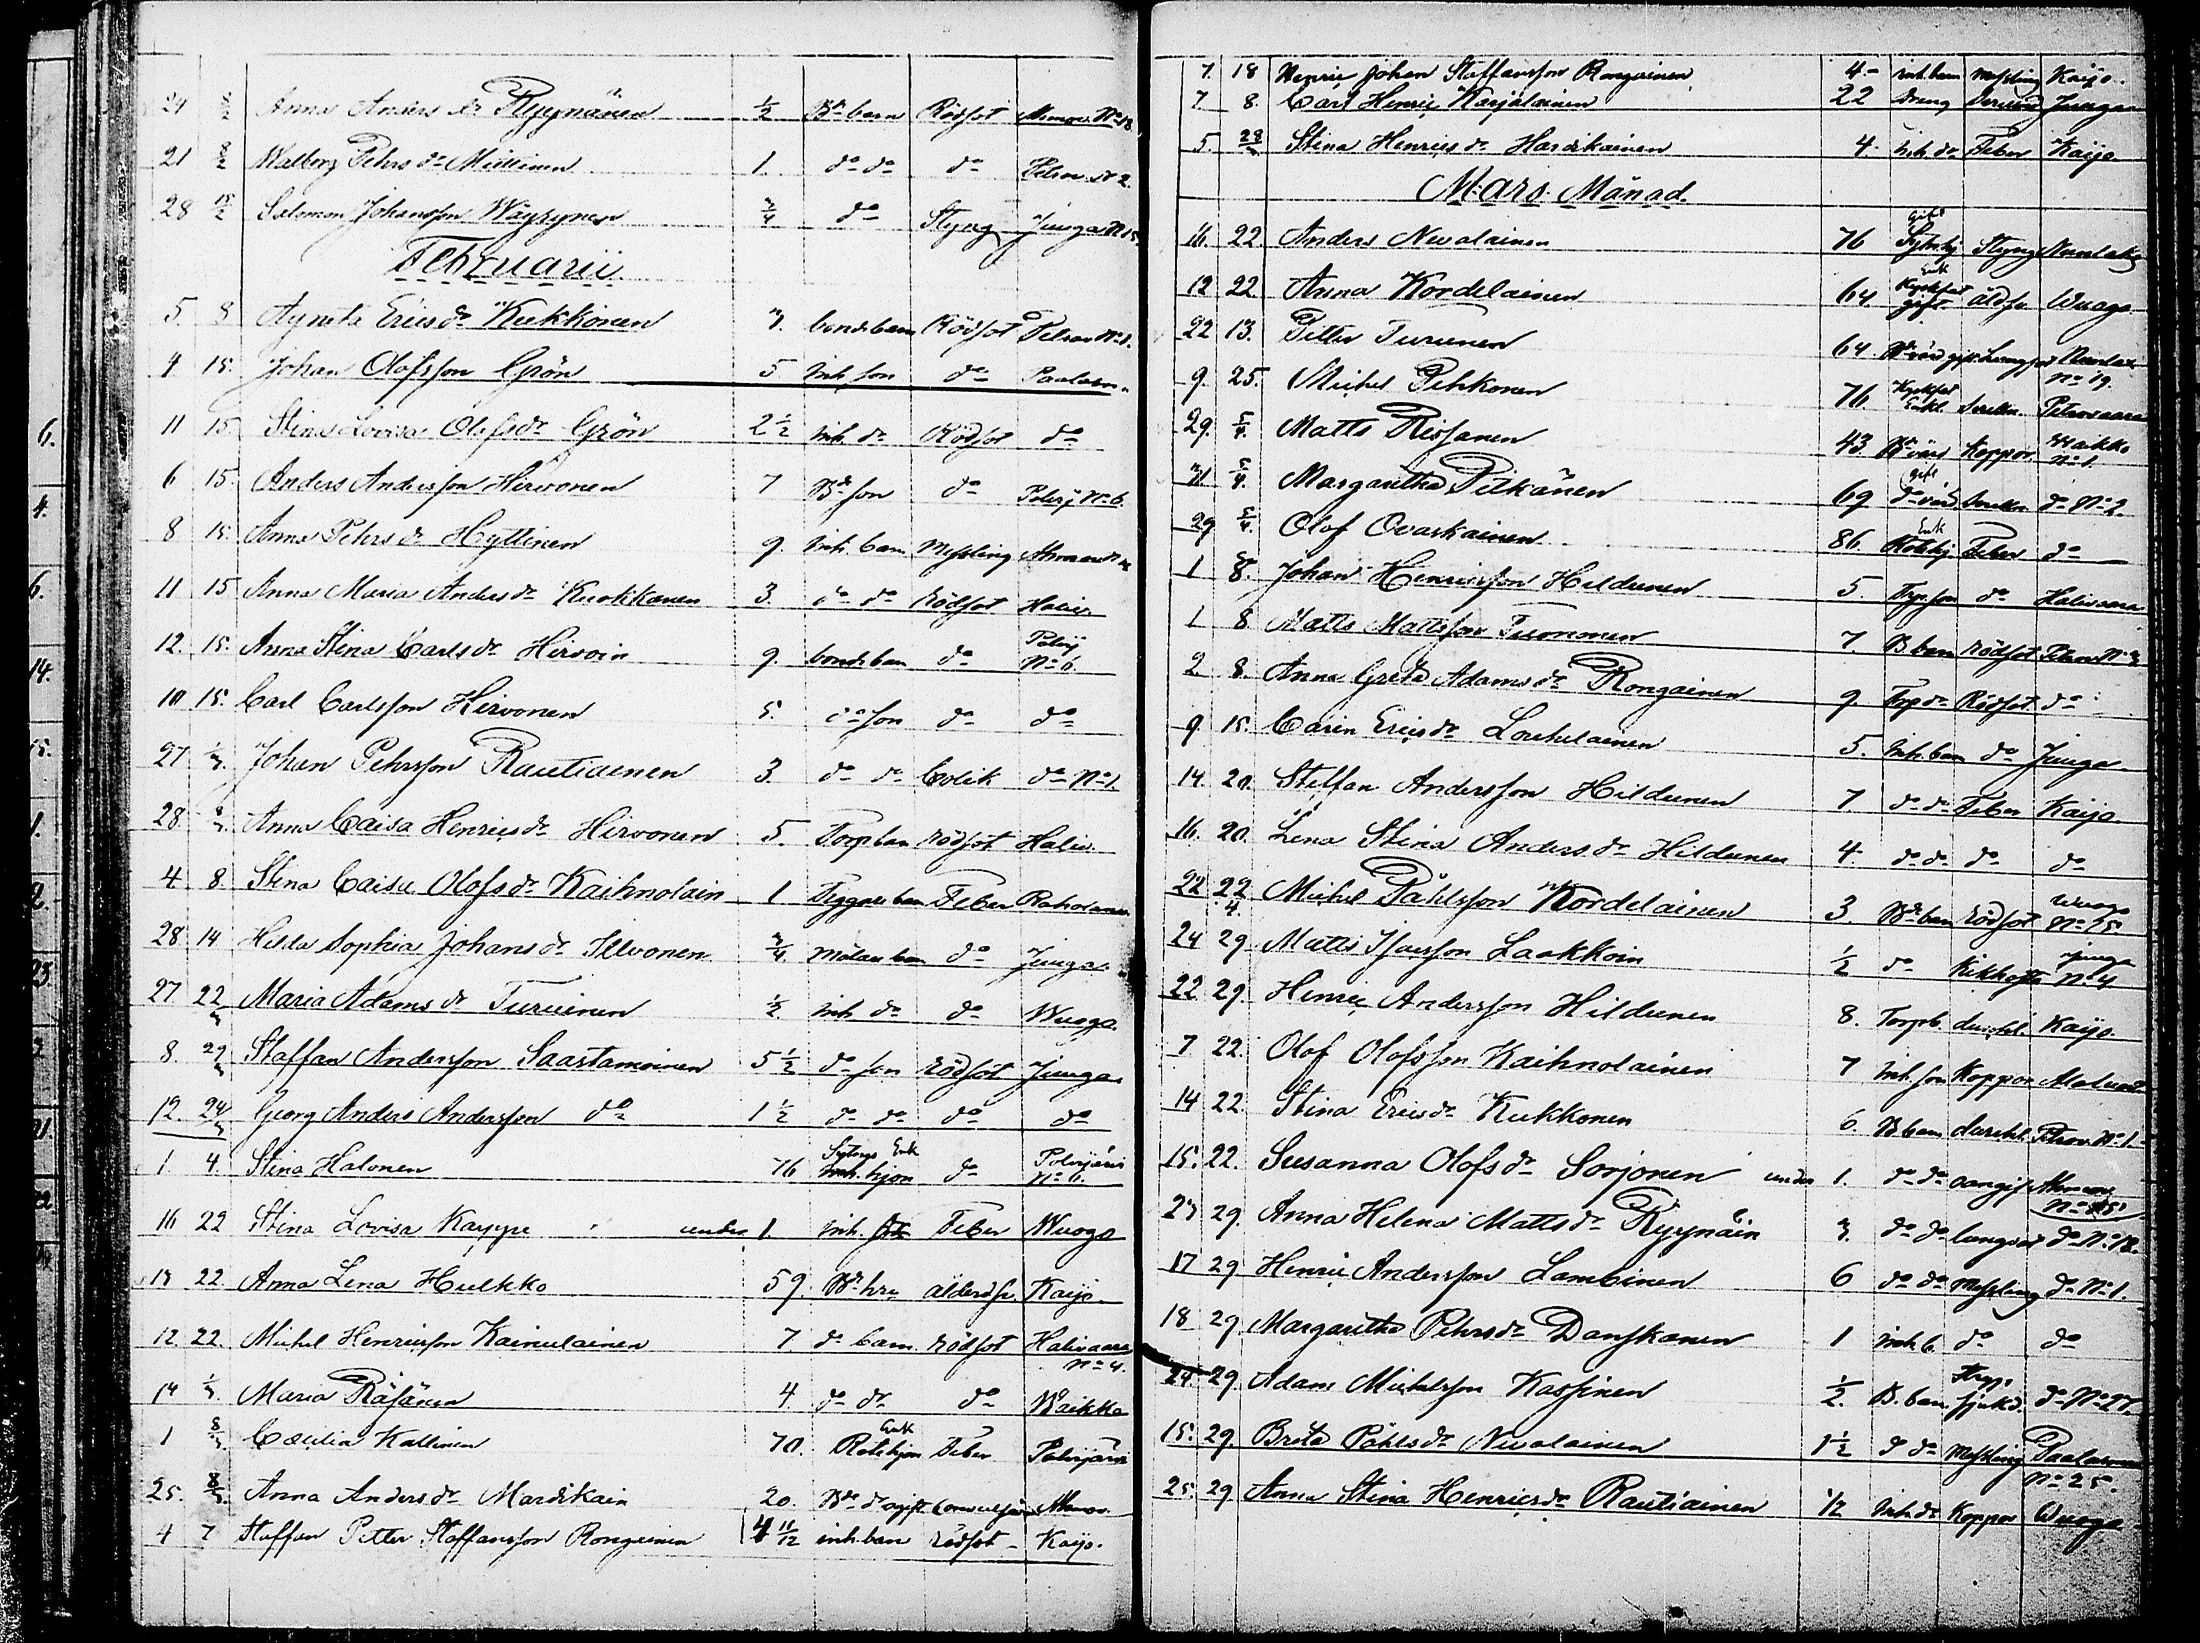 24 8/2 Anna Anders dr Ryynänen 1/2 Bd barn Rödsot Ahmov. No 18.
21 8/2 Walborg Pehrs dr Miettinen 1. do do do Petrov. No 2.
28 15/2 Salomon Johansson Wäyrynen 3/4 do Slyng Junga No 15.
Februarii.
5. 8 Agneta Erics dr Kukkonen 3. bond. barn Rödsot Petrov No 1.
4 15. Johan Olofsson Grön 5 inh son do Paalasm.
11 15. Stina Lovisa Olofs dr Grön 2 1/2 inh. dr Rödsot do
6 15. Anders Andersson Hirvonen 7 Bd son do Polvij No 6.
8 15. Anna Pehrs dr Hyttinen 9. inh. barn Messling Ahmov
11 15 Anna Maria Anders dr Kuokkanen 3. do do rödsot Haliv.
12. 15. Anna Stina Carls dr Hirvoin 9. bond. barn do Polvij No 6.
10 15. Carl Carlsson Hirvonen 5. do son do do
27 1/3 Johan Pehrsson Rautiainen 3. do do Colik do No 1.
28. 8/3 Anna Caisa Henrics dr Hirvonen 5. Torp barn rödsot Haliv.
4 8. Stina Caisa Olofs dr Kaihnolain 1 Tiggare barn Feber
28 14 Hilda Sophia Johans dr Ilvonen 3/4. barn do Junga.
27 22/3 Maria Adams dr Turuinen 1/2. inh. dr do Wuogo.
8. 22/3 Staffan Andersson Saastamoinen 5 1/2 do son rödsot Junga
12. 24/3 Georg Anders Andersson do 1 1/2 do do do do
1. 4. Stina Halonen 76 Sytngs Enk inh. hjon do Polvijärvi No 6.
16 22 Stina Lovisa Kayppi under 1. inh. Feber Wuogo
13 22. Anna Lena Hulkko 59. Bd hru ålderds. Kaijo.
12. 22. Michel Henricsson Kainulainen 7 do barn rödsot Halivaara No 4.
14 1/3 Maria Räsänen 4 do dr do Waikko
1 8/3. Cæcilia Kallinen 70. Enk Rotehjon Feber Polvijärvi
25. 8/3. Anna Anders dr Mardikain 20. Bd dr ogift Ahmov.
4 7 Staffan Petter Staffansson Rongainen 4 11/12 inh. barn rödsot Kaijo.
7. 18 Henric Johan Staffansson Rongainen 4 inh. barn messling Kaijo.
7 8. Carl Henric Karjalainen 22 dreng Junga
5. 28/3 Stina Henrics dr Hardikainen 4. inh. dr Feber Kaijo
Mars Månad.
16. 22. Anders Nevalainen 76 gift Sytn.hj Slyng
12 22. Anna Kordelainen 64. Enk gift ålds. Wuogo
22 13. Petter Turunen 64. Bd värd gift Lungsot No 19.
9. 25. Michel Pehkonen 76. Enkl. Petrovaara
29. 5/4. Matts Rissanen 43. Bd värd Koppor. Waikko No 1.
31 5/4. Margaretha Pitkänen 69 gift do No 2.
29 5/4. Olof Ovaskainen 86. Enk Rotehj. Feber do
1 8. Johan Henricsson Hildunen 5. Torp. son do Halivaara
1 8 Matts Mattsson Tuominen 7 B. barn rödsot Petrov No 3
2. 8. Anna Greta Adams dr Rongainen 9. Torp dr Rödsot do
9. 15. Carin Erics dr Loukulainen 5. inh. barn do Junga
14. 20. Steffan Andersson Hildunen 7. do do Feber Kaijo.
16. 20. Lena Stina Anders dr Hildunen 4. do do do do
22 22/4. Michel Påhlsson Kordelainen 3. Bd barn rödsot Wuogo No 25.
24 29 Matts Isacsson Laakkoin 1/2 do Kikhosta Junga No 4
22 29. Henric Andersson Hildunen 8. Torpb. Kaijo.
7 22. Olof Olofsson Kaihnolainen 7 inh. son Koppor
14 22. Stina Erics dr Kukkonen 6. B. barn Petrov. No 1.
15. 22. Susanna Olofs dr Sorjonen under 1. do do oangif. Ahmov No 15
23 29. Anna Helena Matts dr Ryynäin 3. do do lungsot do No 18.
17 29 Henric Andersson Lamminen 6 do do Messling do No 1.
18 29. Margaretha Pehrs dr Danskanen 1 inh b. do do
24 29. Adam Michelsson Kassinen 1/2. B. barn Stryp sjukd. do No 27.
15. 29. Brita Påhls dr Nevalainen 1 1/2 do dr Messling Paalasmaa No 25.
25. 29 Anna Stina Henrics dr Rautiainen 1/2 inh dr Koppor Wuogo